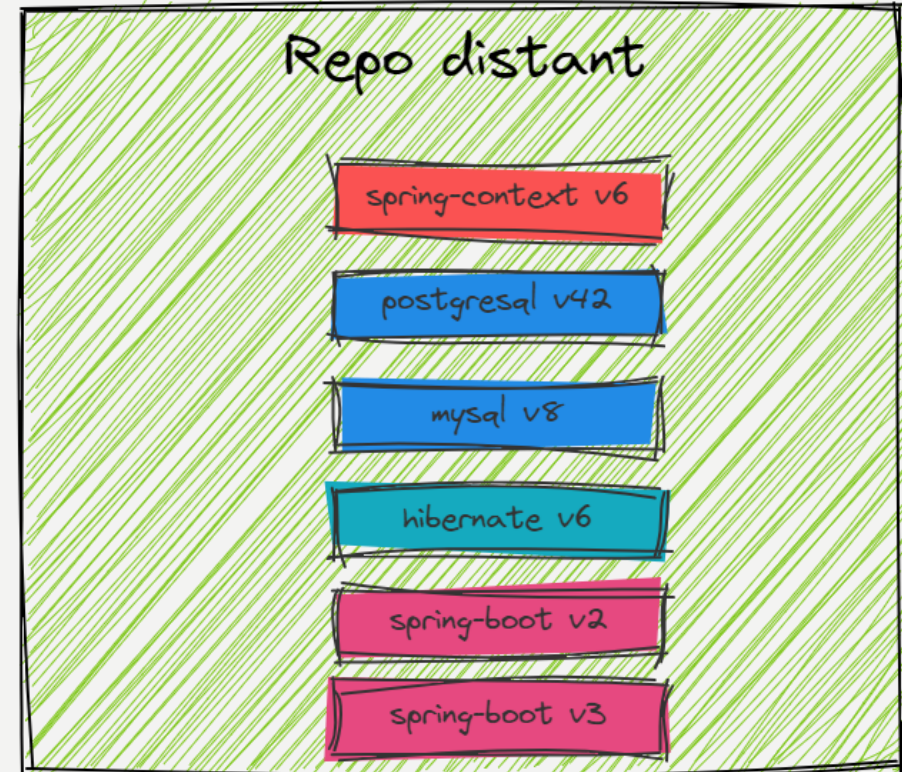 Repo distant
spring-context v6
postgresql v42
mysql v8
hibernate v6
spring-boot v2
spring-boot v3